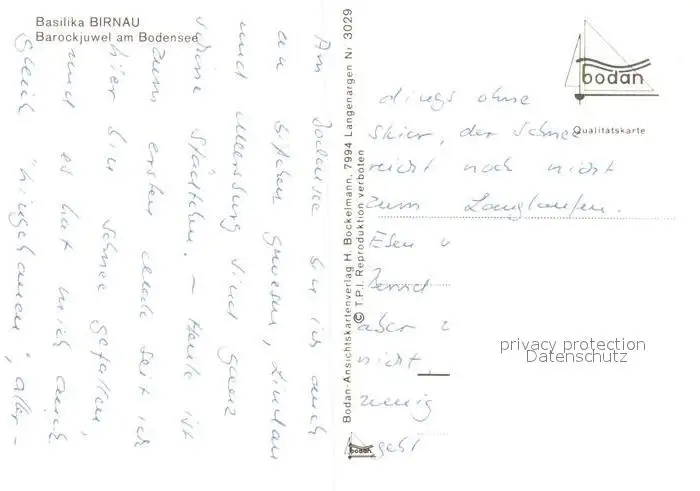 Basilika BIRNAU
Barockjuwel am Bodensee
Am Bodensee bin ich auch
ein bißchen gewesen, Lindau
und Meersburg sind ganz
schöne Städtchen. – Heute ist
zum ersten Mal seit ich
hier bin Schnee gefallen,
und es hat mich auch
gleich "hingehauen", aller-
dings ohne
Skier, der Schnee
reicht noch nicht
zum Langlaufen.
Esen
Bernd
aber
nicht,
wenig
geht
Bodan-Ansichtskartenverlag H. Bockelmann, 7994 Langenargen Nr 3029
© T.P.I. Reproduktion verboten
bodan
Qualitätskarte
privacy protection
Datenschutz
bodan